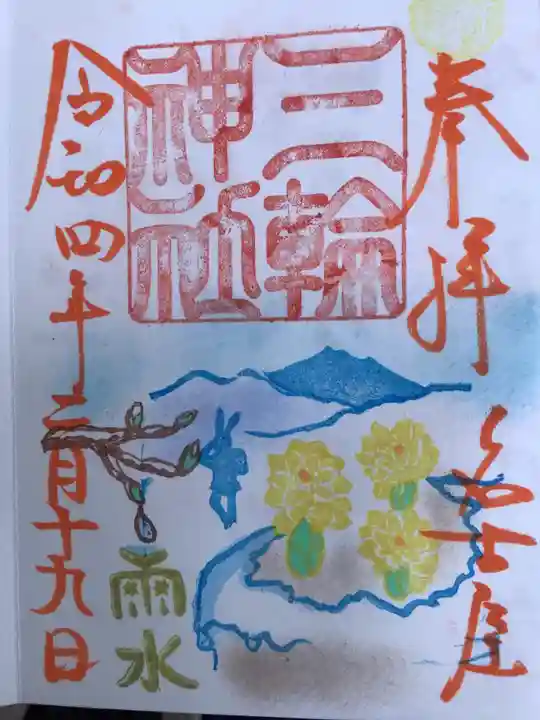 奉拝
三輪
神社
令和四年二月十九日
雨水